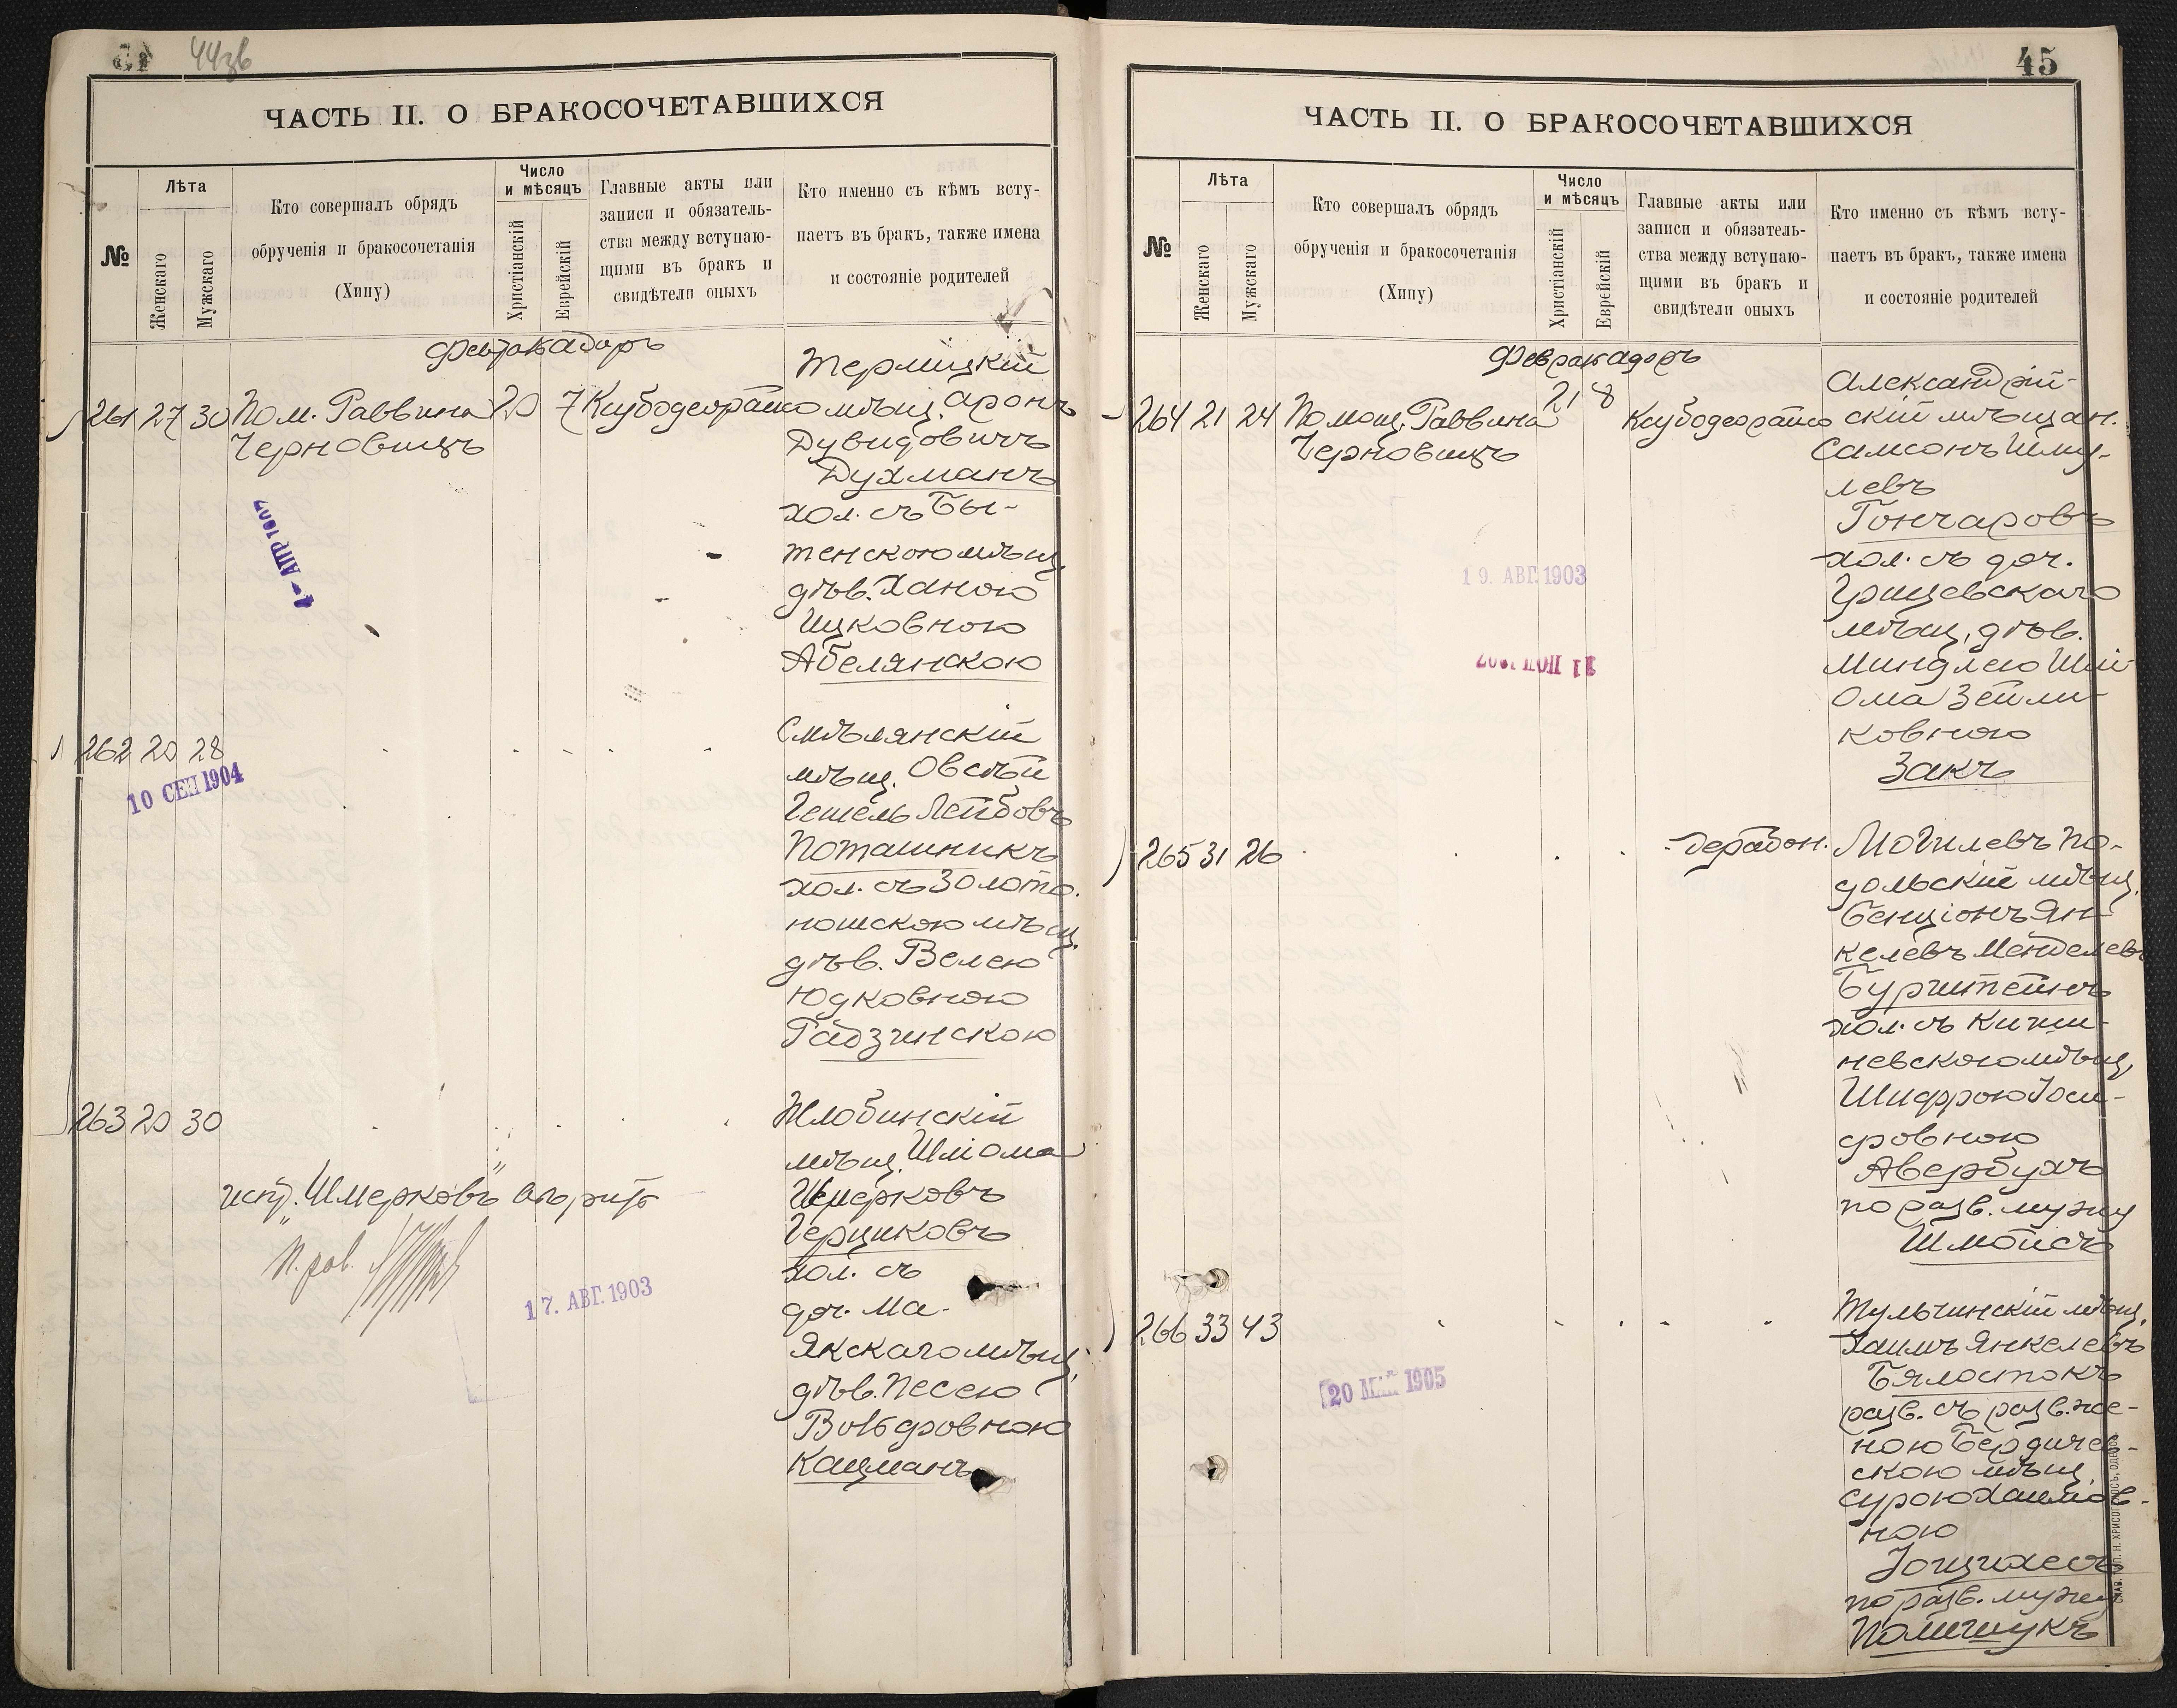 44зв
ЧАСТЬ II. О БРАКОСОЧЕТАВШИХСЯ
№
Лѣта
Женскаго
Мужскаго
Кто совершалъ обрядъ
обрученія и бракосочетанія
(Хипу)
Число
и мѣсяцъ
Христіанскій
Еврейскій
Главные акты или
записи и обязатель-
ства между вступаю-
щими въ бракъ и
свидѣтели оныхъ
Кто именно съ кѣмъ всту-
паетъ въ бракъ, также имена
и состояніе родителей
261 27 30 Пом. Раввина 20 7
Черновицъ
мѣщ. Аронъ
Дувидовичъ
Духманъ
хол. съ Бы-
тенскою мѣщ.
дѣв. Ханою
Ицковною
Абелянскою
4- АПР 1907
262 20 28
10 СЕН 1904
Смѣлянскій
мѣщ. Овсѣй
Гешель Лейбовъ
Поташникъ
хол. съ Золото-
ношскою мѣщ.
дѣв. Велею
Юдковною
Рабзинскою
263 20 30
Жлобинскій
мѣщ. Шліома
Шмерковъ
Герциковъ
хол. съ
доч. Ма-
якскаго мѣщ.
дѣв. Песею
Вольфовною
Кацманъ
испр. "Шмерковъ"
17. АВГ. 1903
45
ЧАСТЬ II. О БРАКОСОЧЕТАВШИХСЯ
№
Лѣта
Женскаго
Мужскаго
Кто совершалъ обрядъ
обрученія и бракосочетанія
(Хипу)
Число
и мѣсяцъ
Христіанскій
Еврейскій
Главные акты или
записи и обязатель-
ства между вступаю-
щими въ бракъ и
свидѣтели оныхъ
Кто именно съ кѣмъ всту-
паетъ въ бракъ, также имена
и состояніе родителей
264 21 24 Помощ. Раввина 21 8
Черновицъ
Александрій-
скій мѣщан.
Самсонъ Шму-
левъ
Гончаровъ
хол. съ доч.
Грицевскаго
мѣщ. дѣв.
Миндлею Шлі-
ома Зейли-
ковною
Закъ
19. АВГ. 1903
265 31 26
Могилевъ По-
дольскій мѣщ.
Бенціонъ Ян-
келевъ Менделевъ
Бурштейнъ
хол. съ Киши-
невскою мѣщ.
Шифрою Іоси-
фовною
Авербухъ
по разв. мужу
Шмойсъ
266 33 43
Тульчинскій мѣщ.
Хаимъ Янкелевъ
Бялостокъ
разв. съ разв. же-
ною Бердичев-
скою мѣщ.
Сурою Хаимов-
ною
по разв. мужу
Полищукъ
20 МАЙ 1905